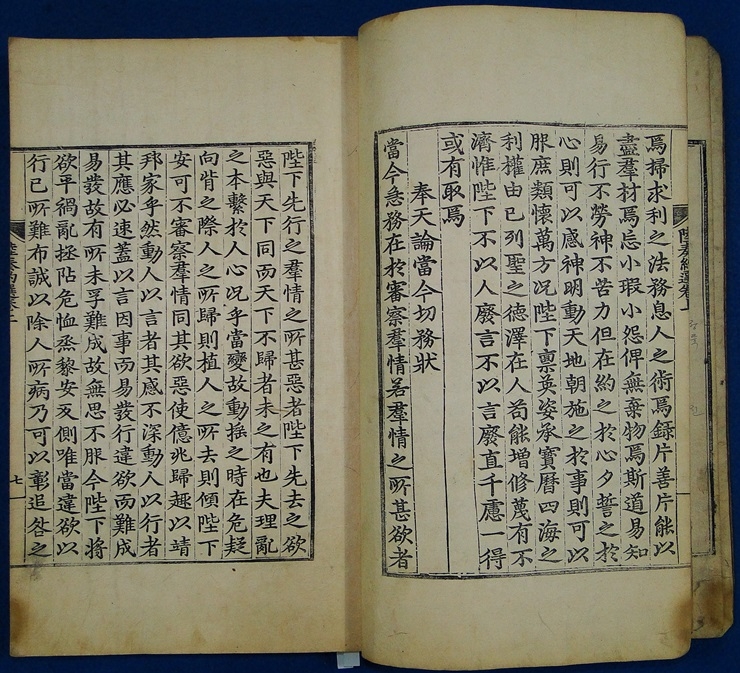 陸奏約選卷上
焉掃求利之法務息人之術焉錄片善片能以
盡羣材焉忘小瑕小怨俾無棄物焉斯道易知
易行不勞神不苦力但在約之於心夕誓之於
心則可以感神明動天地朝施之於事則可以
服庶類懷萬方况陛下稟英姿承寶曆四海之
利權由己列聖之德澤在人苟能增修蔑有不
濟惟陛下不以人廢言不以言廢直千慮一得
或有取焉
奉天論當今切務狀
當今急務在於審察羣情若羣情之所甚欲者
陛下先行之羣情之所甚惡者陛下先去之欲
惡與天下同而天下不歸者未之有也夫理亂
之本繫於人心况乎當變故動搖之時在危疑
向背之際人之所歸則植人之所去則傾陛下
安可不審察羣情同其欲惡使億兆歸趣以靖
邦家乎然動人以言者其感不深動人以行者
其應必速蓋以言因事而易發行違欲而難成
易發故有所未孚難成故無思不服今陛下將
欲平禍亂拯阽危恤烝黎安反側唯當違欲以
行已所難布誠以除人所病乃可以彰追咎之
七